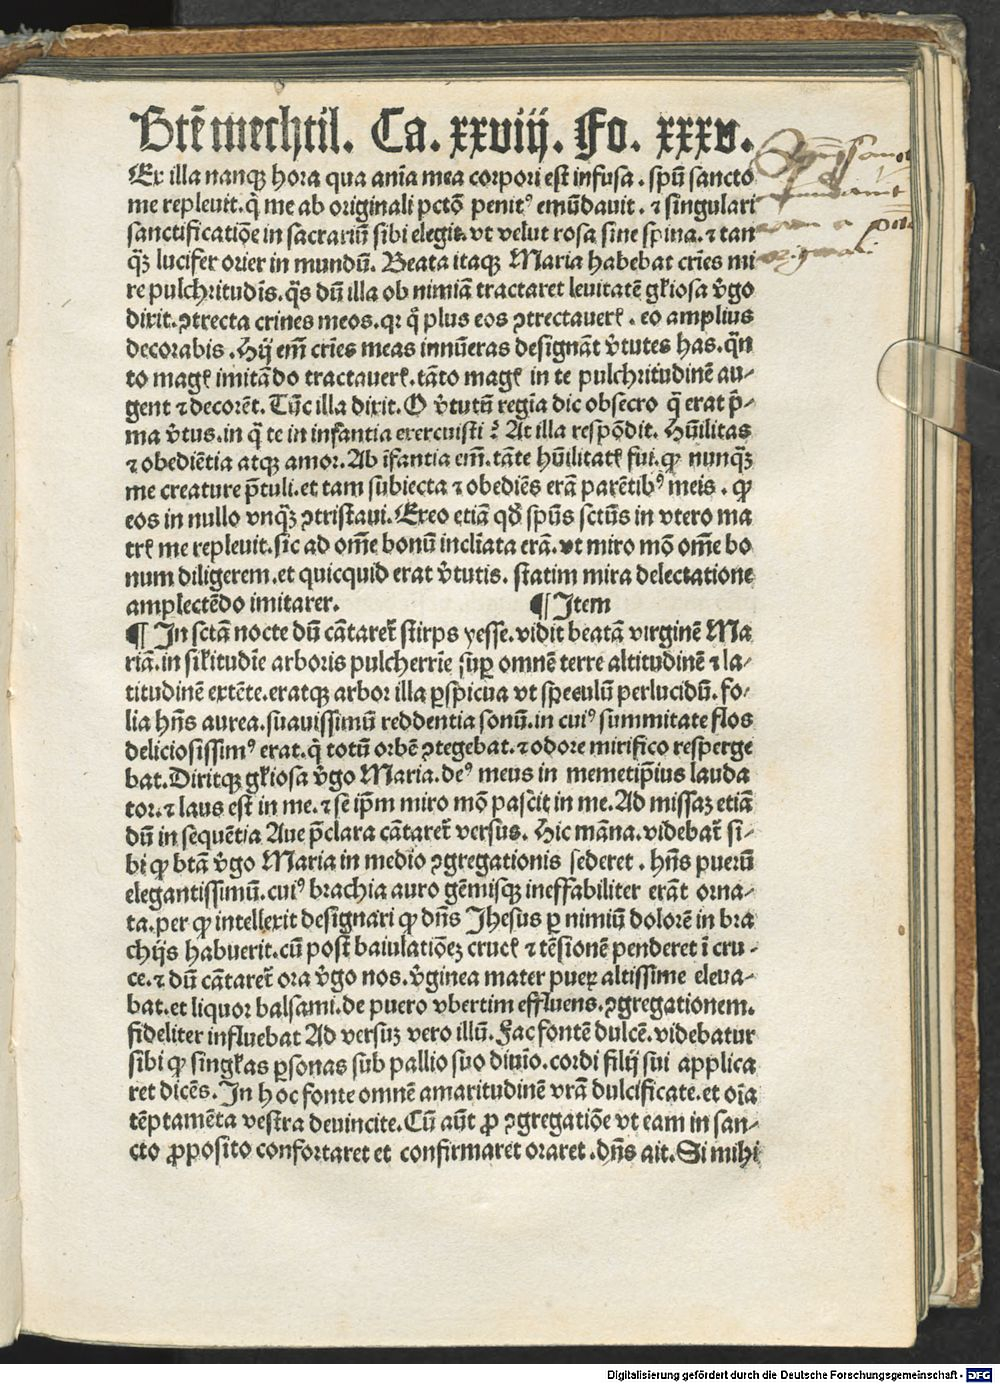 Btē mechtil. Ca. xxviij. Fo. xxxv.
Ex illa nanqꝫ hora qua aīa mea corpori est infusa . spū sancto
me repleuit. q̄ me ab originali pctō penitꝰ emūdauit. ⁊ singulari
sanctificatiōe in sacrariū sibi elegit. vt velut rosa sine spina. ⁊ tan
q̄ꝫ lucifer orier in mundū. Beata itaqꝫ Maria habebat crīes mi
re pulchritudīs. q̄s dū illa ob nimiā tractaret leuitatē gl'iosa v̄go
dixit. ꝯtrecta crines meos. qꝛ q̄ plus eos ꝯtrectauerꝭ . eo amplius
decorabis . Hij em̄ crīes meas innūeras designāt v̄tutes has. q̄n
to magꝭ imitādo tractauerꝭ. tāto magꝭ in te pulchritudinē au⸗
gent ⁊ decorēt. Tūc illa dixit. O v̄tutū regīa dic obsecro q̄ erat p̄⸗
ma v̄tus. in q̄ te in infantia exercuisti ? At illa respōdit. Hūilitas
⁊ obediētia atqꝫ amor. Ab īfantia em̄. tāte hūilitatꝭ fui. ꝙ nunq̄ꝫ
me creature p̄tuli. et tam subiecta ⁊ obediēs erā parētibꝰ meis . ꝙ
eos in nullo vnq̄ꝫ ꝯtristaui. Ex eo etiā qd̄ spūs sctūs in vtero ma
trꝭ me repleuit. sic ad om̄e bonū inclīata erā. vt miro mō om̄e bo
num diligerem. et quicquid erat v̄tutis. statim mira delectatione
amplectēdo imitarer. ¶ Item
¶ In sctā nocte dū cātaret̄ stirps yesse. vidit beatā virginē Ma
riā. in sil'itudīe arboris pulcherrīe suꝑ omnē terre altitudinē ⁊ la⸗
titudinē extēte. eratqꝫ arbor illa ꝑspicua vt speculū perlucidū. fo⸗
lia hn̄s aurea. suauissimū reddentia sonū. in cuiꝰ summitate flos
deliciosissimꝰ erat. q̄ totū orbē ꝯtegebat. ⁊ odore mirifico resperge
bat. Dixitqꝫ gl'iosa v̄go Maria. deꝰ meus in memetip̄ius lauda
tor. ⁊ laus est in me. ⁊ se ip̄m miro mō pascit in me. Ad missaꝫ etiā
dū in sequētia Aue p̄clara cātaret̄ versus. Hic māna. videbat̄ si⸗
bi ꝙ btā v̄go Maria in medio ꝯgregationis sederet . hn̄s puerū
elegantissimū. cuiꝰ brachia auro gēmisqꝫ ineffabiliter erāt orna⸗
ta. per ꝙ intellexit designari ꝙ dn̄s Jhesus ꝑ nimiū dolorē in bra
chijs habuerit. cū post baiulatiōeꝫ crucꝭ ⁊ tēsionē penderet ī cru⸗
ce. ⁊ dū cātaret̄ ora v̄go nos. v̄ginea mater pueꝝ altissime eleua⸗
bat. et liquor balsami. de puero vbertim effluens. ꝯgregationem.
fideliter influebat Ad versuꝫ vero illū. Fac fontē dulcē. videbatur
sibi ꝙ singl'as ꝑsonas sub pallio suo diuīo. cordi filij sui applica
ret dicēs. In hoc fonte omnē amaritudinē vrā dulcificate. et oīa
tēptamēta vestra deuincite. Cū aūt ꝓ ꝯgregatiōe vt eam in san⸗
cto ꝓposito confortaret et confirmaret oraret . dn̄s ait. Si mihi
Digitalisierung gefördert durch die Deutsche Forschungsgemeinschaft - DFG